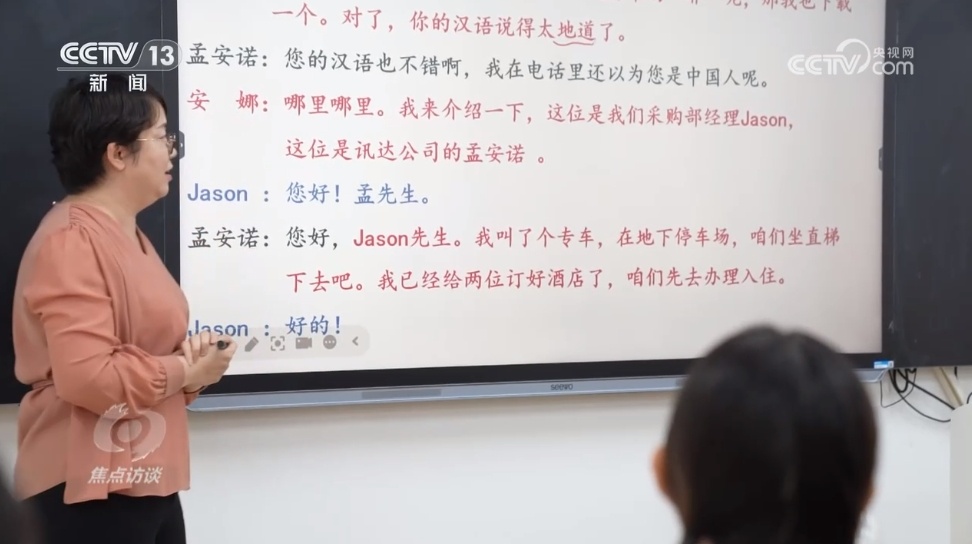 一个。对了，你的汉语说得太地道了。
孟安诺：您的汉语也不错啊，我在电话里还以为您是中国人呢。
安　娜：哪里哪里。我来介绍一下，这位是我们采购部经理Jason，
这位是讯达公司的孟安诺 。
Jason ：您好！孟先生。
孟安诺：您好，Jason先生。我叫了个专车，在地下停车场，咱们坐直梯
下去吧。我已经给两位订好酒店了，咱们先去办理入住。
Jason ：好的！
CCTV 13
新闻
央视网
CCTV.com
焦点访谈
seewo